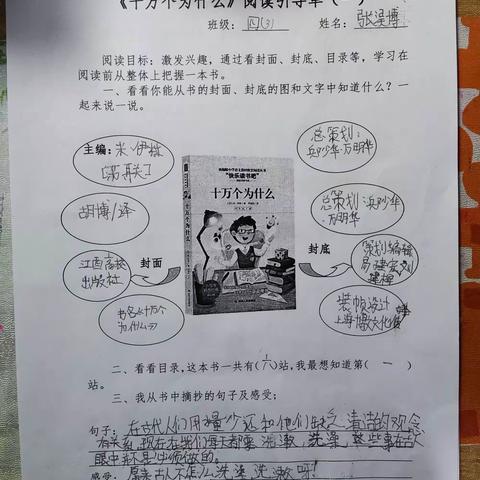 《十万个为什么》阅读引导单（一）
班级： 四(3) 姓名：张淏博
阅读目标：激发兴趣，通过看封面、封底、目录等，学习在
阅读前从整体上把握一本书。
一、看看你能从书的封面、封底的图和文字中知道什么？一
起来说一说。
主编：米·伊林
胡博/译
江西高校
出版社
书名《十万个
为什么》
封面
"快乐读书吧"
十万个为什么
十万个为什么
封底
总策划：
万明华
总策划：
万明华
策划编辑
装帧设计
上海
二、看看目录，这本书一共有(六)站，我最想知道第(一)
站。
三、我从书中摘抄的句子及感受：
句子：在古代人们用量少还和他们缺乏清洁的观念
有关系，现在在我们每天都要洗漱，洗澡，这些事在古
眼中并不是必须做的。
感受：原来古人不怎么洗澡洗漱呀！